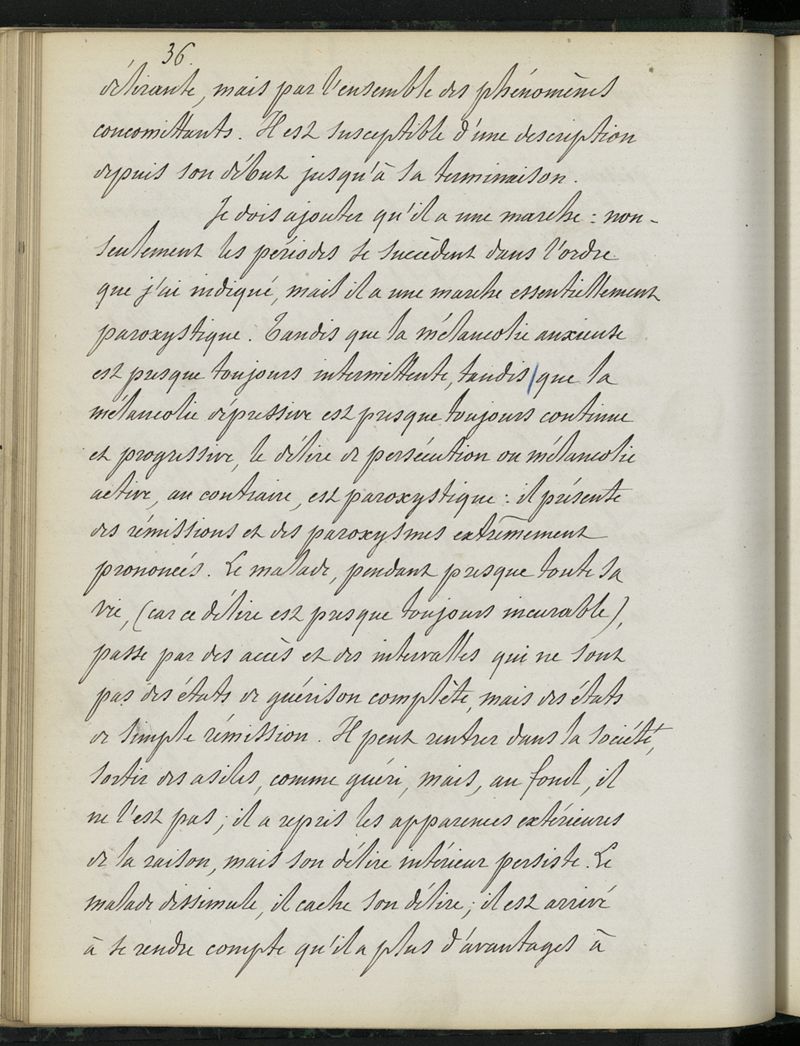 36.
délirante, mais par l'ensemble des phénomènes
concomittants. Il est susceptible d'une description
depuis son début jusqu'à sa terminaison.
Je dois ajouter qu'il a une marche : non-
seulement les périodes se succèdent dans l'ordre
que j'ai indiqué, mais il a une marche essentiellement
paroxystique. Tandis que la mélancolie anxieuse
est presque toujours intermittente, tandis que la
mélancolie dépressive est presque toujours continue
et progressive, le délire de persécution ou mélancolie
active, au contraire, est paroxystique : il présente
des rémissions et des paroxysmes extrêmement
prononcés. Le malade, pendant presque toute sa
vie, (car ce délire est presque toujours incurable),
passe par des accès et des intervalles qui ne sont
pas des états de guérison complète, mais des états
de simple rémission. Il peut rentrer dans la société,
sortir des asiles, comme guéri, mais, au fond, il
ne l'est pas ; il a repris les apparences extérieures
de la raison, mais son délire intérieur persiste. Le
malade dissimule, il cache son délire ; il est arrivé
à se rendre compte qu'il a plus d'avantages à